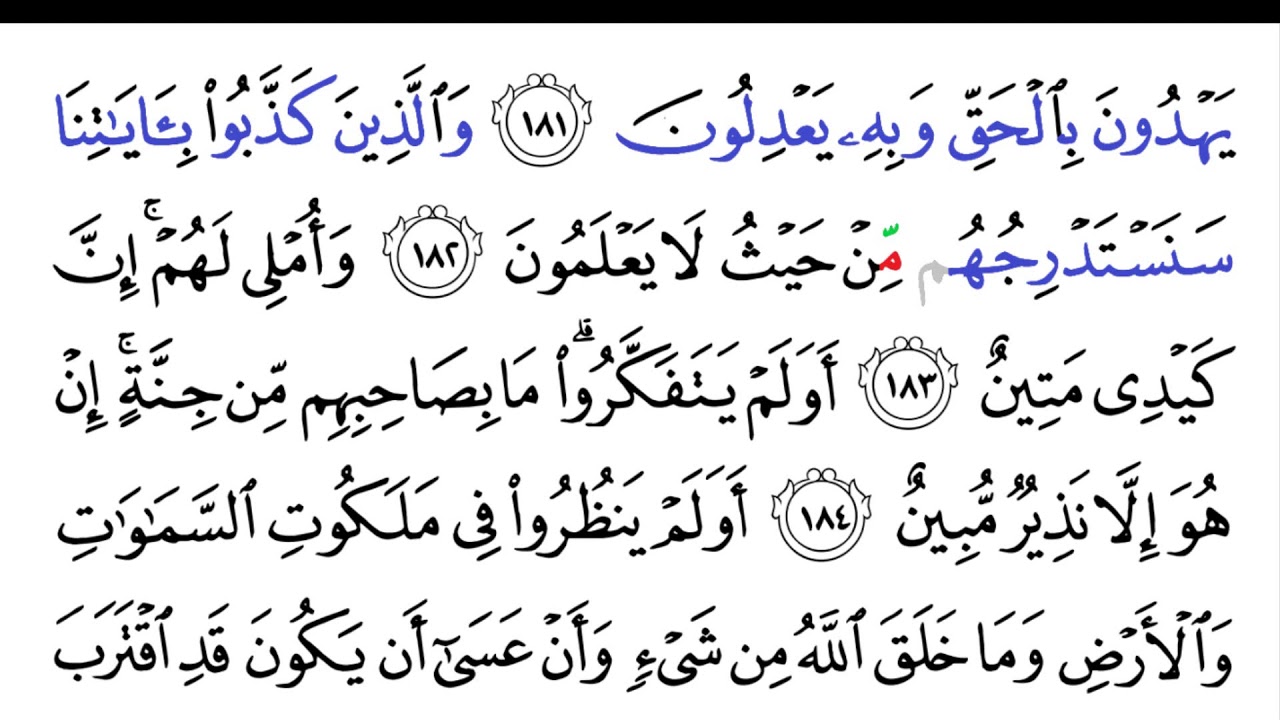 يَهۡدُونَ بِٱلۡحَقِّ وَبِهِۦ يَعۡدِلُونَ ١٨١ وَٱلَّذِينَ كَذَّبُواْ بِـَٔايَٰتِنَا
سَنَسۡتَدۡرِجُهُم مِّنۡ حَيۡثُ لَا يَعۡلَمُونَ ١٨٢ وَأُمۡلِي لَهُمۡۚ إِنَّ
كَيۡدِي مَتِينٌ ١٨٣ أَوَلَمۡ يَتَفَكَّرُواْۗ مَا بِصَاحِبِهِم مِّن جِنَّةٍۚ إِنۡ
هُوَ إِلَّا نَذِيرٞ مُّبِينٌ ١٨٤ أَوَلَمۡ يَنظُرُواْ فِي مَلَكُوتِ ٱلسَّمَٰوَٰتِ
وَٱلۡأَرۡضِ وَمَا خَلَقَ ٱللَّهُ مِن شَيۡءٖ وَأَنۡ عَسَىٰٓ أَن يَكُونَ قَدِ ٱقۡتَرَبَ